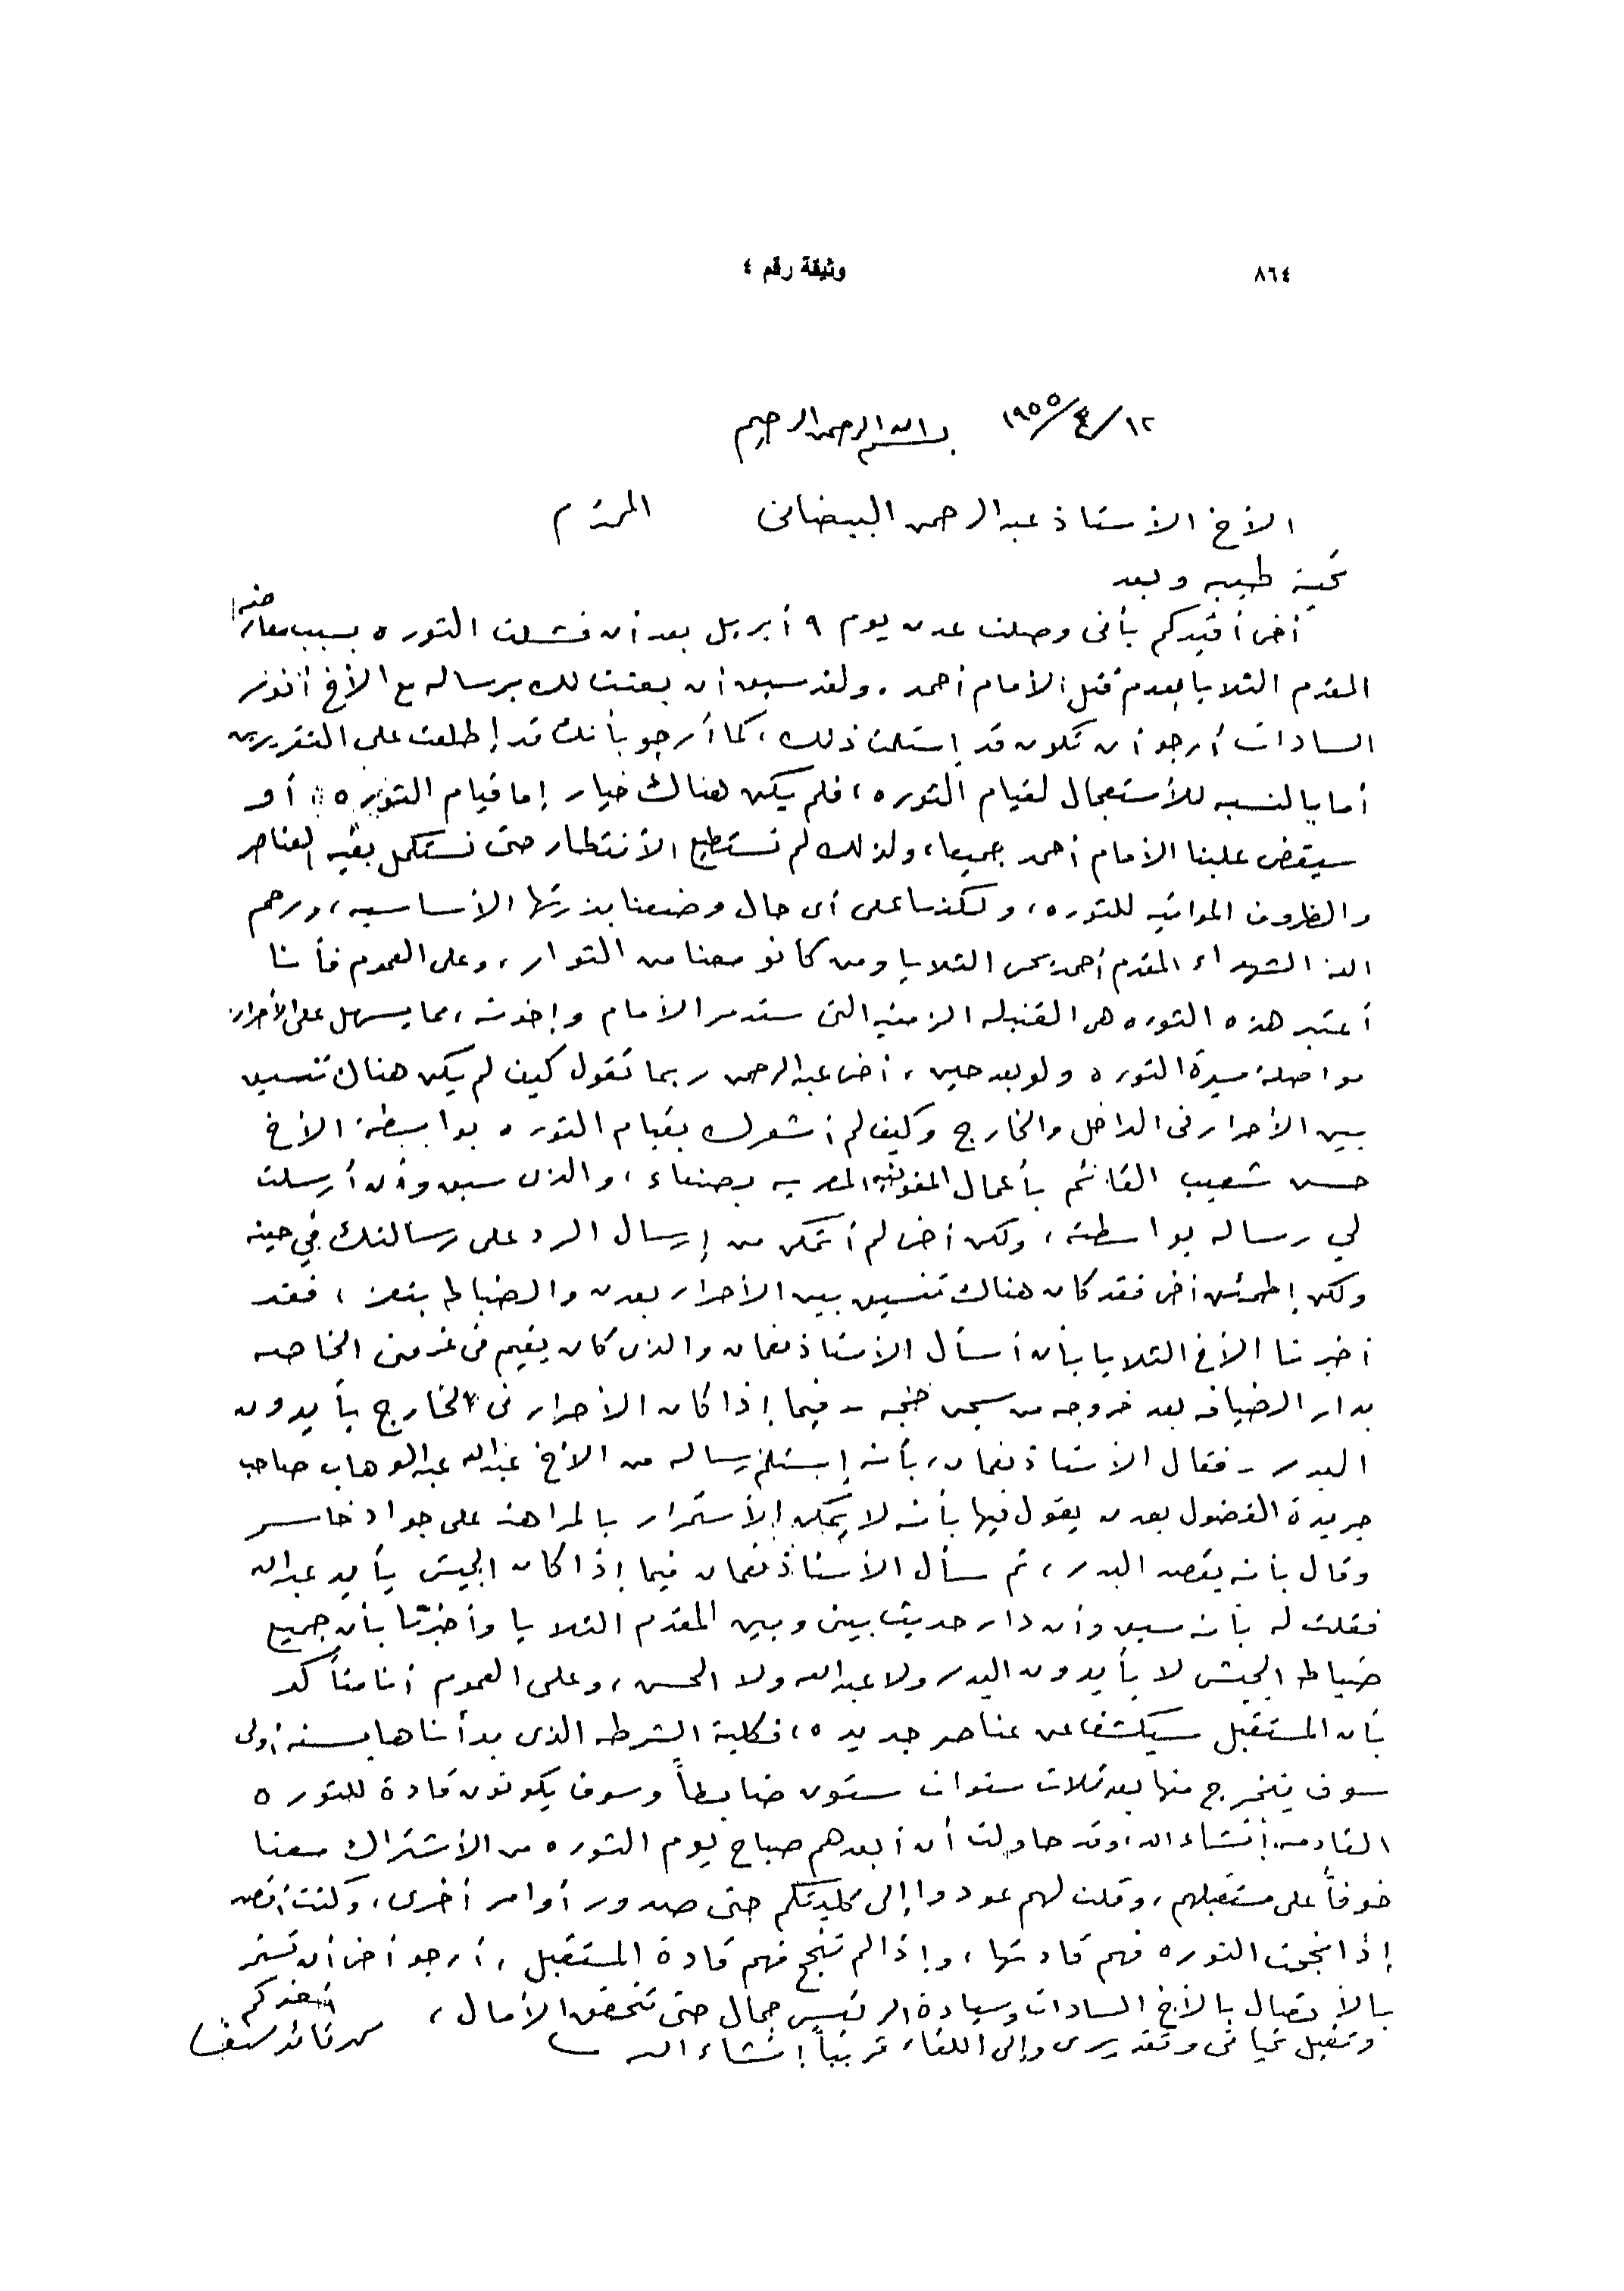 ٨٦٤
وثيقة رقم ٤
١٢/٤/١٩٥٥ بسم الله الرحمن الرحيم
الأخ الأستاذ عبدالرحمن البيضانى المحترم
تحية طيبه وبعد
أخى أفيدكم بأنى وصلت عدن يوم ٩ أبريل بعد أن فشلت الثوره بسبب معارضة
المقدم الثلايا بعدم قتل الأمام أحمد. ولقد سبق أن بعثت لك برساله مع الأخ أنور
السادات أرجو أن تكون قد إستلمت ذلك، كما أرجو بأنك قد إطلعت على التقريرين
أما بالنسبه للأستعجال لقيام الثوره، فلم يكن هناك خيار إما قيام الثوره أو
سيقضى علينا الأمام أحمد جميعا، ولذلك لم نستطيع الأنتظار حتى نستكمل بقية العناصر
والظروف المواتيه للثوره، ولكننا على أى حال وضعنا بذرتها الأساسيه، ورحم
الله الشهداء المقدم أحمد يحى الثلايا ومن كانو معنا من الثوار، وعلى العموم فأنا
أعتبر هذه الثوره هى القنبله الزمنيه التى ستدمر الأمام وإخوته، مما يسهل على الأحرار
مواصلة مسيرة الثوره ولو بعد حين، أخى عبدالرحمن ربما تقول كيف لم يكن هناك تنسيق
بين الأحرار فى الداخل والخارج وكيف لم أشعرك بقيام الثوره بواسطة الأخ
حسن شعيب القائم بأعمال المفوضيه المصريه بصنعاء، والذى سبق وأن أرسلت
لي رساله بواسطته، ولكن أخى لم أتمكن من إرسال الرد على رسالتك في حينه
ولكن إطمئن أخى فقد كان هناك تنسيق بين الأحرار بعدن والضباط بتعز، فقد
أخبرنا الأخ الثلايا بأن أسأل الأستاذ نعمان والذى كان يقيم فى غرفتى الخاصه
بدار الضيافه بعد خروجه من سجن حجه - فيما إذا كان الأحرار فى الخارج يأيدون
البدر - فقال الأستاذ نعمان، بأنه إستلم رساله من الأخ عبدالله عبدالوهاب صاحب
جريدة الفضول بعدن يقول فيها بأنه لا يمكن الأستمرار بالمراهنه على جواد خاسر
وقال بأنه يقصد البدر، ثم سأل الأستاذ نعمان فيما إذا كان الجيش يأيد عبدالله
فقلت له بأنه سبق وأن دار حديث بينى وبين المقدم الثلايا وأخبرنا بأن جميع
ضباط الجيش لا يأيدون البدر ولا عبدالله ولا الحسن، وعلى العموم أنا متأكد
بأن المستقبل سيكشف عن عناصر جديده، فكلية الشرطه الذى بدأناها بسنه أولى
سوف يتخرج منها بعد ثلاث سنوات ستون ضابطاً وسوف يكونون قادة للثوره
القادمه إنشاء الله، وقد حاولت أن أبعدهم صباح يوم الثوره من الأشتراك معنا
خوفاً على مستقبلهم، وقلت لهم عودوا إلى كليتكم حتى صدور أوامر أخرى، وكنت أقصد
إذا نجحت الثوره فهم قادتها، وإذا لم تنجح فهم قادة المستقبل، أرجو أخى أن تستمر
بالأتصال بالأخ السادات وسيادة الرئيس جمال حتى تتحقق الأمال،
وتقبل تحياتى وتقديرى وإلى اللقاء قريباً إنشاء الله
أخوكم
محمد قائد سيف